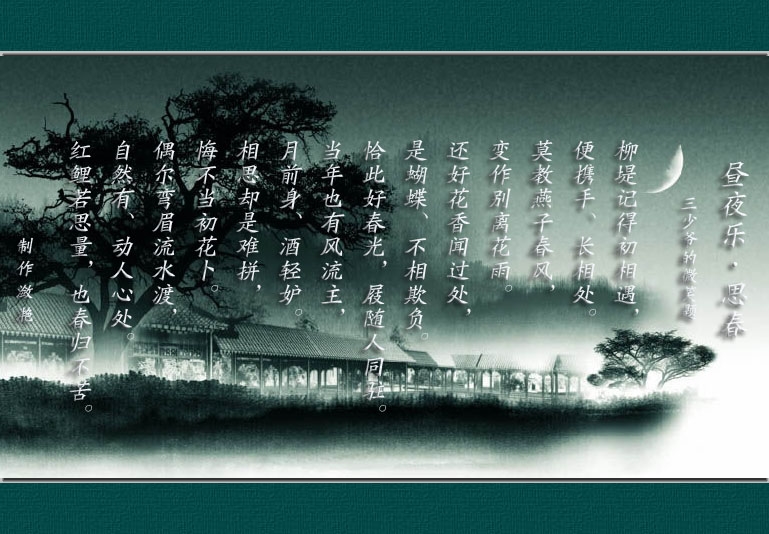 昼夜乐·思春
三少爷的
柳堤记得初相遇，
便携手、长相处。
莫教燕子春风，
变作别离花雨。
还好花香闻过处，
是蝴蝶、不相欺负。
恰此好春光，屐随人同驻。
当年也有风流主，
月前身、酒轻妒。
相思却是难拼，
悔不当初花卜。
偶尔弯眉流水渡，
自然有、动人心处。
红鲤若思量，也春归不苦。
制作潋滟